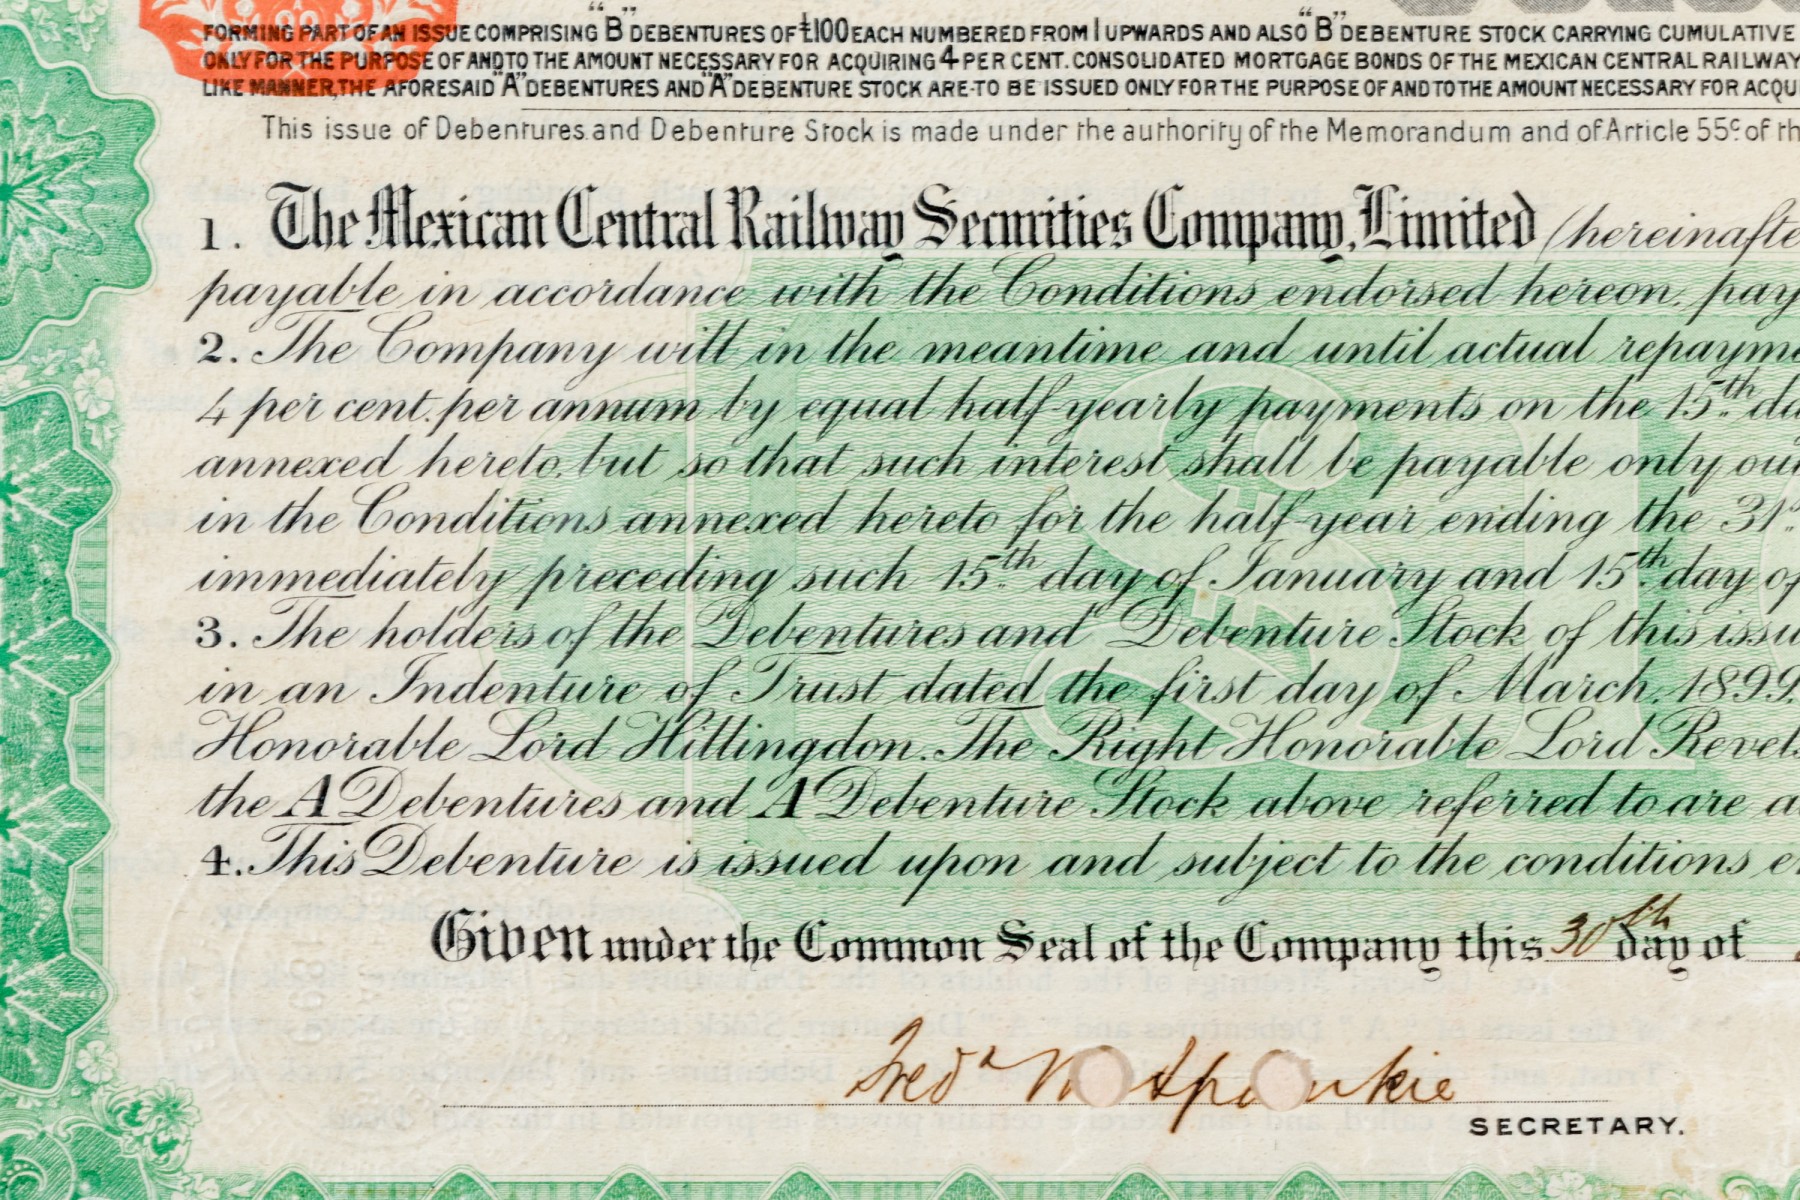 FORMING PART OF AN ISSUE COMPRISING "B" DEBENTURES OF £100 EACH NUMBERED FROM 1 UPWARDS AND ALSO "B" DEBENTURE STOCK CARRYING CUMULATIVE
ONLY FOR THE PURPOSE OF AND TO THE AMOUNT NECESSARY FOR ACQUIRING 4 PER CENT. CONSOLIDATED MORTGAGE BONDS OF THE MEXICAN CENTRAL RAILWAY
LIKE MANNER, THE AFORESAID "A" DEBENTURES AND "A" DEBENTURE STOCK ARE TO BE ISSUED ONLY FOR THE PURPOSE OF AND TO THE AMOUNT NECESSARY FOR ACQU
This issue of Debentures and Debenture Stock is made under the authority of the Memorandum and of Article 55c of th
1. The Mexican Central Railway Securities Company, Limited (hereinafte
payable in accordance with the Conditions endorsed hereon, pay
2. The Company will in the meantime and until actual repayme
4 per cent. per annum by equal half-yearly payments on the 15th da
annexed hereto, but so that such interest shall be payable only ou
in the Conditions annexed hereto for the half-year ending the 31st
immediately preceding such 15th day of January and 15th day of
3. The holders of the Debentures and Debenture Stock of this issu
in an Indenture of Trust dated the first day of March, 1899,
Honorable Lord Hillingdon. The Right Honorable Lord Revels
the A Debentures and A Debenture Stock above referred to are a
4. This Debenture is issued upon and subject to the conditions e
Given under the Common Seal of the Company this 30th day of
SECRETARY.